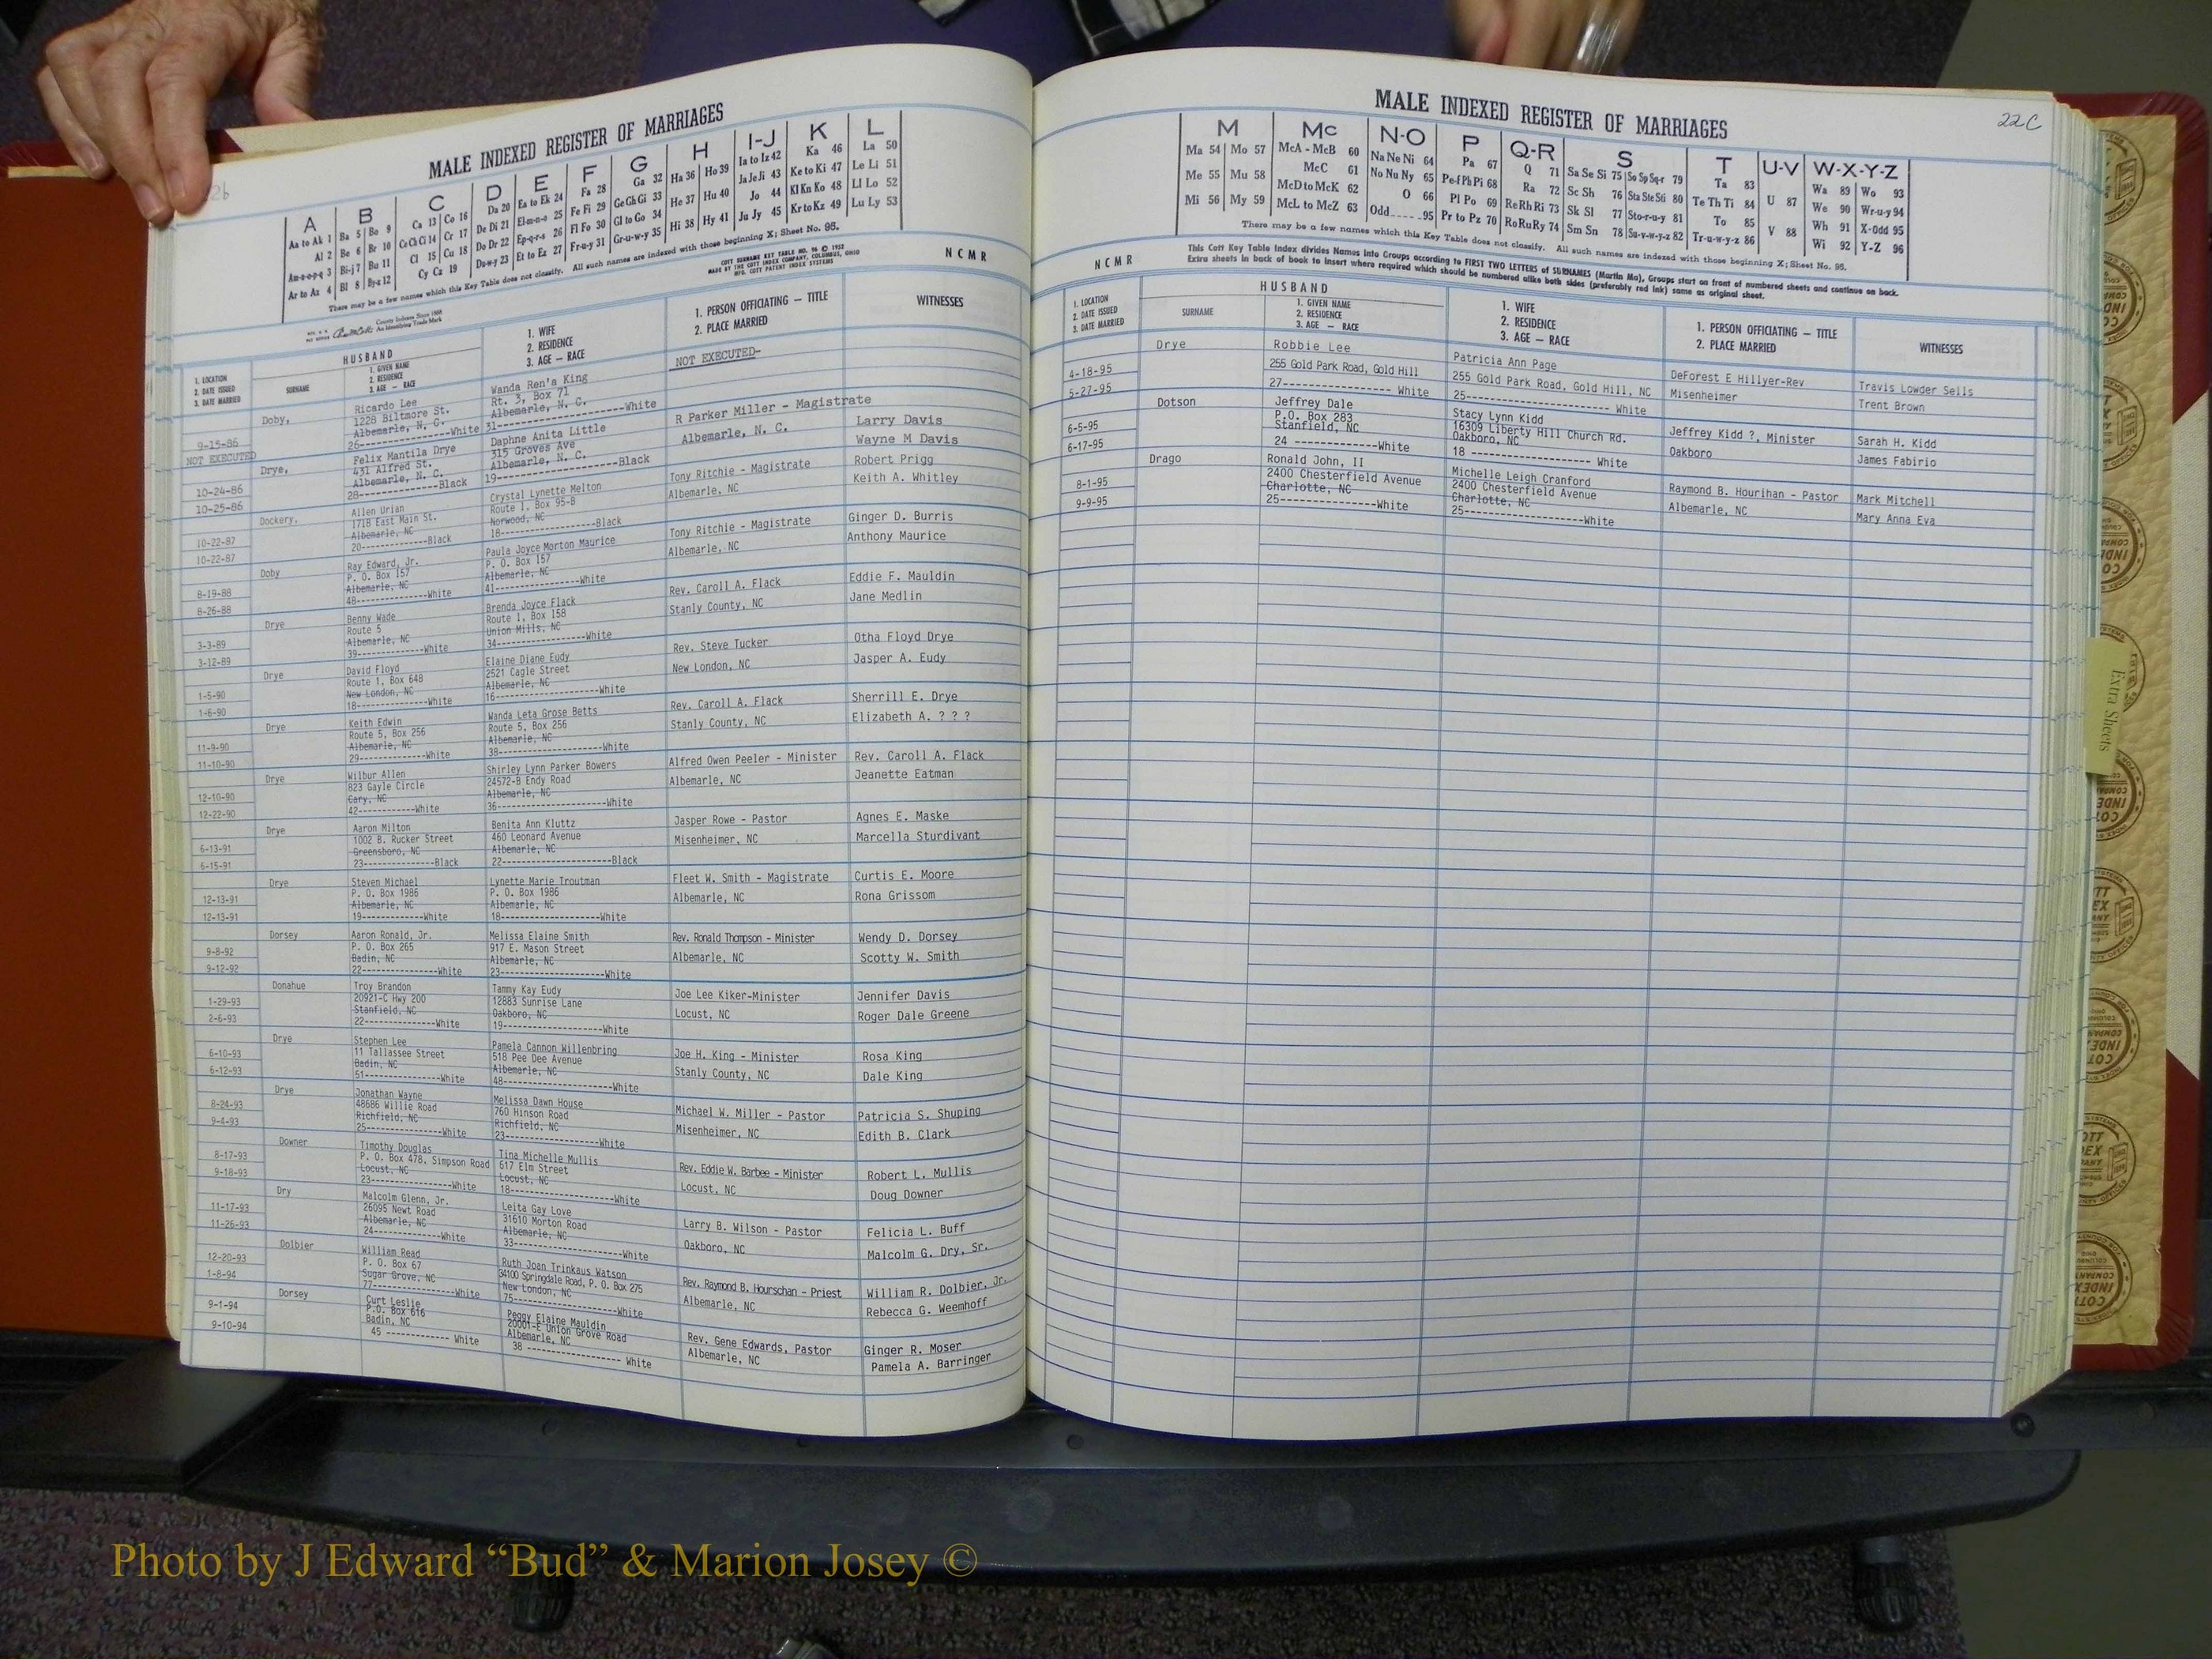 MALE INDEXED REGISTER OF MARRIAGES
A B C D E F G H I-J K L
Aa to Ak 1 Ba 5 Bo 9 Ca 13 Co 16 Da 20 Ea to Ek 24 Fa 28 Ga 32 Ha 36 Ho 39 Ia to Iz 42 Ka 46 La 50
Al 2 Be 6 Br 10 Ce Ch Ci 14 Cr 17 De Di 21 El-m-n-o 25 Fe Fi 29 Ge Gh Gi 33 He 37 Hu 40 Ja Je Ji 43 Ke to Ki 47 Le Li 51
Am-n-o-p-q 3 Bi-j 7 Bu 11 Cl 15 Cu 18 Do Dr 22 Ep-q-r-s 26 Fl Fo 30 Gl to Go 34 Hi 38 Hy 41 Jo 44 Kl Kn Ko 48 Ll Lo 52
Ar to Az 4 Bl 8 By-z 12 Cy Cz 19 Du-w-y 23 Et to Ez 27 Fr-u-y 31 Gr-u-w-y 35 Ju Jy 45 Kr to Kz 49 Lu Ly 53
There may be a few names which this Key Table does not classify. All such names are indexed with those beginning X; Sheet No. 95.
COTT SURNAME KEY TABLE NO. 96 © 1952
MADE BY THE COTT INDEX COMPANY, COLUMBUS, OHIO
MFG. COTT PATENT INDEX SYSTEMS
NCMR
County Indexes Since 1888
An Identifying Trade Mark
HUSBAND
1. LOCATION
2. DATE ISSUED
3. DATE MARRIED
SURNAME
1. GIVEN NAME
2. RESIDENCE
3. AGE — RACE
1. WIFE
2. RESIDENCE
3. AGE — RACE
1. PERSON OFFICIATING — TITLE
2. PLACE MARRIED
WITNESSES
9-15-86
NOT EXECUTED
Doby,
Ricardo Lee
1228 Biltmore St.
Albemarle, N. C.
26--------------White
Wanda Ren'a King
Rt. 3, Box 71
Albemarle, N. C.
31--------------White
NOT EXECUTED-
10-24-86
10-25-86
Drye,
Felix Mantila Drye
431 Alfred St.
Albemarle, N. C.
28--------------Black
Daphne Anita Little
315 Groves Ave
Albemarle, N. C.
19--------------Black
R Parker Miller - Magistrate
Albemarle, N. C.
Larry Davis
Wayne M Davis
10-22-87
10-22-87
Dockery,
Allen Urian
1718 East Main St.
Albemarle, NC
20--------------Black
Crystal Lynette Melton
Route 1, Box 95-B
Norwood, NC
18--------------Black
Tony Ritchie - Magistrate
Albemarle, NC
Robert Prigg
Keith A. Whitley
8-19-88
8-26-88
Doby
Ray Edward, Jr.
P. O. Box 157
Albemarle, NC
48--------------White
Paula Joyce Morton Maurice
P. O. Box 157
Albemarle, NC
41--------------White
Tony Ritchie - Magistrate
Albemarle, NC
Ginger D. Burris
Anthony Maurice
3-3-89
3-12-89
Drye
Benny Wade
Route 5
Albemarle, NC
39--------------White
Brenda Joyce Flack
Route 1, Box 158
Union Mills, NC
34--------------White
Rev. Caroll A. Flack
Stanly County, NC
Eddie F. Mauldin
Jane Medlin
1-5-90
1-6-90
Drye
David Floyd
Route 1, Box 648
New London, NC
18--------------White
Elaine Diane Eudy
2521 Cagle Street
Albemarle, NC
16--------------White
Rev. Steve Tucker
New London, NC
Otha Floyd Drye
Jasper A. Eudy
11-9-90
11-10-90
Drye
Keith Edwin
Route 5, Box 256
Albemarle, NC
29--------------White
Wanda Leta Grose Betts
Route 5, Box 256
Albemarle, NC
38--------------White
Rev. Caroll A. Flack
Stanly County, NC
Sherrill E. Drye
Elizabeth A. ? ? ?
12-10-90
12-22-90
Drye
Wilbur Allen
823 Gayle Circle
Cary, NC
42--------------White
Shirley Lynn Parker Bowers
24572-B Endy Road
Albemarle, NC
36--------------White
Alfred Owen Peeler - Minister
Albemarle, NC
Rev. Caroll A. Flack
Jeanette Eatman
6-13-91
6-15-91
Drye
Aaron Milton
1002 B. Rucker Street
Greensboro, NC
23--------------Black
Benita Ann Kluttz
460 Leonard Avenue
Albemarle, NC
22--------------Black
Jasper Rowe - Pastor
Misenheimer, NC
Agnes E. Maske
Marcella Sturdivant
12-13-91
12-13-91
Drye
Steven Michael
P. O. Box 1986
Albemarle, NC
19--------------White
Lynette Marie Troutman
P. O. Box 1986
Albemarle, NC
18--------------White
Fleet W. Smith - Magistrate
Albemarle, NC
Curtis E. Moore
Rona Grissom
9-8-92
9-12-92
Dorsey
Aaron Ronald, Jr.
P. O. Box 265
Badin, NC
22--------------White
Melissa Elaine Smith
917 E. Mason Street
Albemarle, NC
23--------------White
Rev. Ronald Thompson - Minister
Albemarle, NC
Wendy D. Dorsey
Scotty W. Smith
1-29-93
2-6-93
Donahue
Troy Brandon
20921-C Hwy 200
Stanfield, NC
22--------------White
Tammy Kay Eudy
12883 Sunrise Lane
Oakboro, NC
19--------------White
Joe Lee Kiker-Minister
Locust, NC
Jennifer Davis
Roger Dale Greene
6-10-93
6-12-93
Drye
Stephen Lee
11 Tallassee Street
Badin, NC
51--------------White
Pamela Cannon Willenbring
518 Pee Dee Avenue
Albemarle, NC
48--------------White
Joe H. King - Minister
Stanly County, NC
Rosa King
Dale King
8-24-93
9-4-93
Drye
Jonathan Wayne
48686 Willie Road
Richfield, NC
25--------------White
Melissa Dawn House
760 Hinson Road
Richfield, NC
23--------------White
Michael W. Miller - Pastor
Misenheimer, NC
Patricia S. Shuping
Edith B. Clark
8-17-93
9-18-93
Downer
Timothy Douglas
P. O. Box 478, Simpson Road
Locust, NC
23--------------White
Tina Michelle Mullis
617 Elm Street
Locust, NC
18--------------White
Rev. Eddie W. Barbee - Minister
Locust, NC
Robert L. Mullis
Doug Downer
11-17-93
11-26-93
Dry
Malcolm Glenn, Jr.
26095 Newt Road
Albemarle, NC
24--------------White
Leita Gay Love
31610 Morton Road
Albemarle, NC
33--------------White
Larry B. Wilson - Pastor
Oakboro, NC
Felicia L. Buff
Malcolm G. Dry, Sr.
12-20-93
1-8-94
Dolbier
William Read
P. O. Box 67
Sugar Grove, NC
77--------------White
Ruth Joan Trinkaus Watson
34100 Springdale Road, P. O. Box 275
New London, NC
75--------------White
Rev. Raymond B. Hourschan - Priest
Albemarle, NC
William R. Dolbier, Jr.
Rebecca G. Weemhoff
9-1-94
9-10-94
Dorsey
Curt Leslie
P.O. Box 616
Badin, NC
45 -------------- White
Peggy Elaine Mauldin
20001-E Union Grove Road
Albemarle, NC
38 -------------- White
Rev. Gene Edwards, Pastor
Albemarle, NC
Ginger R. Moser
Pamela A. Barringer
MALE INDEXED REGISTER OF MARRIAGES
22C
M Mc N-O P Q-R S T U-V W-X-Y-Z
Ma 54 Mo 57 McA - McB 60 Na Ne Ni 64 Pa 67 Q 71 Sa Se Si 75 So Sp Sq-r 79 Ta 83 U 87 Wa 89 Wo 93
Me 55 Mu 58 McC 61 No Nu Ny 65 Pe-f Ph Pi 68 Ra 72 Sc Sh 76 Sta Ste Sti 80 Te Th Ti 84 V 88 We 90 Wr-u-y 94
Mi 56 My 59 McD to McK 62 O 66 Pl Po 69 Re Rh Ri 73 Sk Sl 77 Sto-r-u-y 81 To 85 Wh 91 X-Odd 95
McL to McZ 63 Odd-----95 Pr to Pz 70 Ro Ru Ry 74 Sm Sn 78 Su-v-w-y-z 82 Tr-u-w-y-z 86 Wi 92 Y-Z 96
There may be a few names which this Key Table does not classify. All such names are indexed with those beginning X; Sheet No. 95.
This Cott Key Table Index divides Names into Groups according to FIRST TWO LETTERS of SURNAMES (Martin Ma), Groups start on front of numbered sheets and continue on back.
Extra sheets in back of book to insert where required which should be numbered alike both sides (preferably red ink) same as original sheet.
NCMR
HUSBAND
1. LOCATION
2. DATE ISSUED
3. DATE MARRIED
SURNAME
1. GIVEN NAME
2. RESIDENCE
3. AGE — RACE
1. WIFE
2. RESIDENCE
3. AGE — RACE
1. PERSON OFFICIATING — TITLE
2. PLACE MARRIED
WITNESSES
4-18-95
5-27-95
Drye
Robbie Lee
255 Gold Park Road, Gold Hill
27-------------- White
Patricia Ann Page
255 Gold Park Road, Gold Hill, NC
25-------------- White
DeForest E Hillyer-Rev
Misenheimer
Travis Lowder Sells
Trent Brown
6-5-95
6-17-95
Dotson
Jeffrey Dale
P.O. Box 283
Stanfield, NC
24 --------------White
Stacy Lynn Kidd
16309 Liberty Hill Church Rd.
Oakboro, NC
18 -------------- White
Jeffrey Kidd ?, Minister
Oakboro
Sarah H. Kidd
James Fabirio
8-1-95
9-9-95
Drago
Ronald John, II
2400 Chesterfield Avenue
Charlotte, NC
25--------------White
Michelle Leigh Cranford
2400 Chesterfield Avenue
Charlotte, NC
25--------------White
Raymond B. Hourihan - Pastor
Albemarle, NC
Mark Mitchell
Mary Anna Eva
Extra Sheets
Photo by J Edward “Bud” & Marion Josey ©